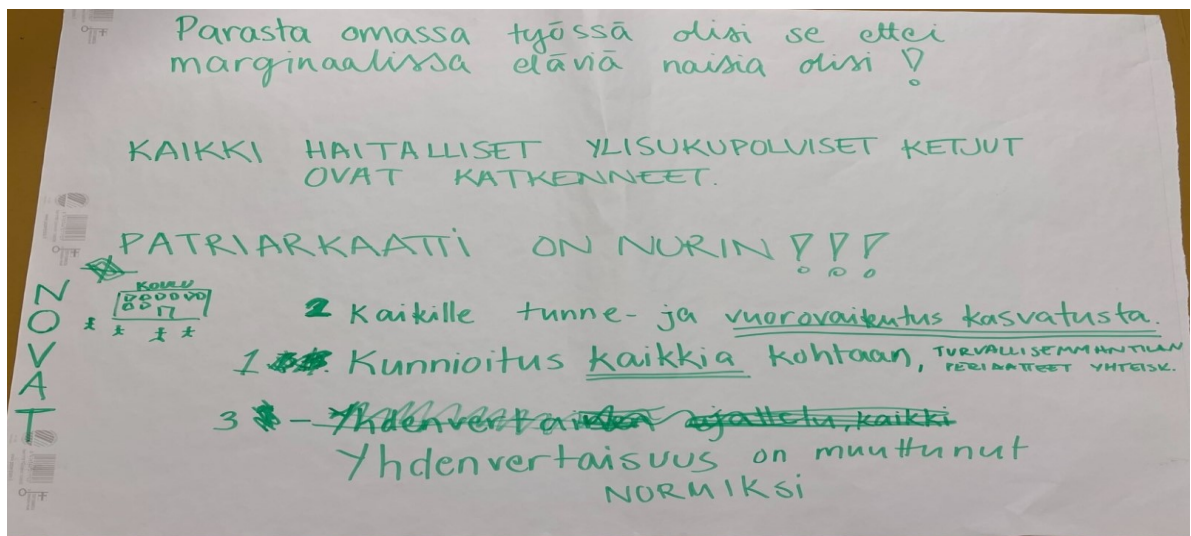 Parasta omassa työssä olisi se ettei
marginaalissa eläviä naisia olisi!
KAIKKI HAITALLISET YLISUKUPOLVISET KETJUT
OVAT KATKENNEET.
PATRIARKAATTI ON NURIN!!!
NOVAT
KOULU
2 Kaikille tunne- ja vuorovaikutus kasvatusta.
1 Kunnioitus kaikkia kohtaan, TURVALLISEMMAN TILAN
PERIAATTEET YHTEISK.
3 - Yhdenvertaisuus ajattelu, kaikki
Yhdenvertaisuus on muuttunut
NORMIKSI